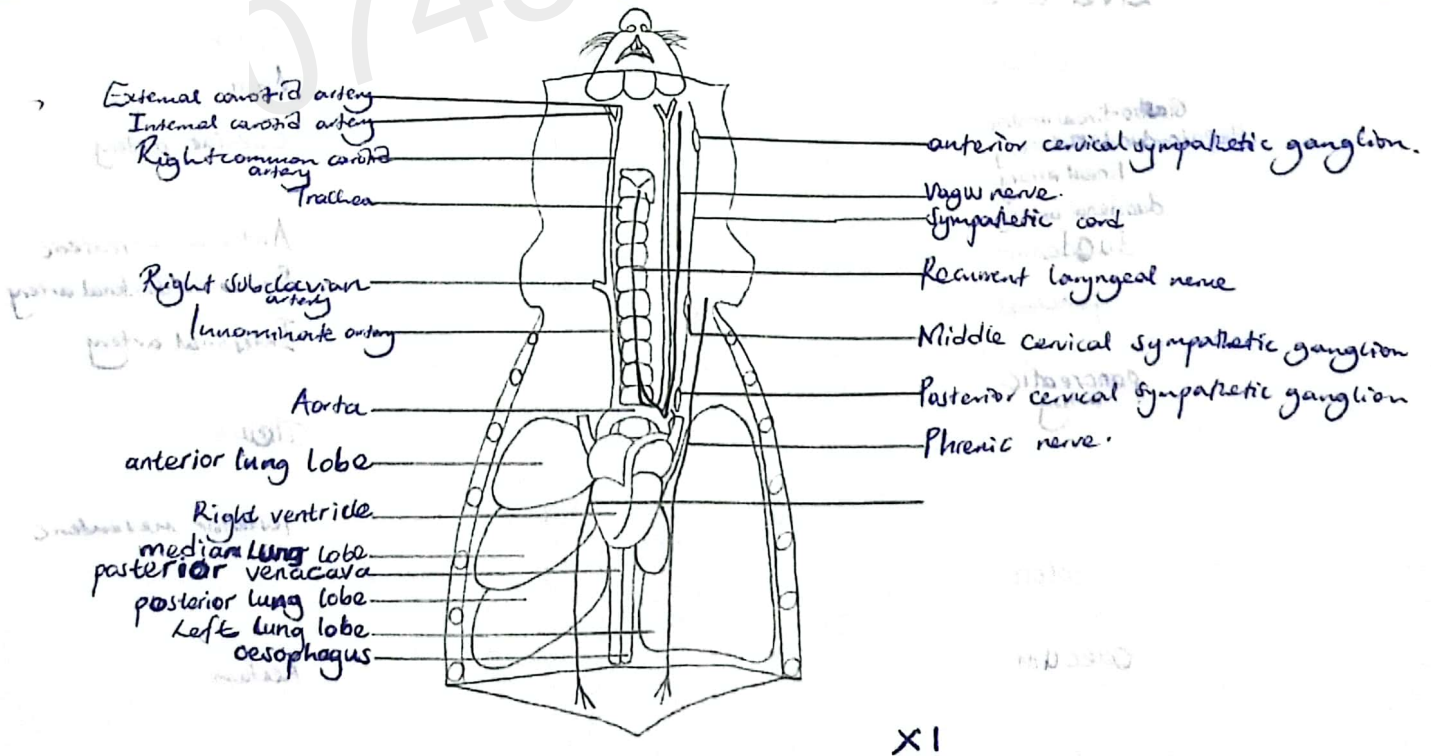 074
External carotid artery
Internal carotid artery
Right common carotid
artery
Trachea
Right subclavian
artery
Innominate artery
Aorta
anterior lung lobe
Right ventricle
median lung lobe
posterior venacava
posterior lung lobe
Left lung lobe
oesophagus
anterior cervical sympathetic ganglion.
Vagus nerve.
Sympathetic cord
Recurrent laryngeal nerve
Middle cervical sympathetic ganglion
Posterior cervical sympathetic ganglion
Phrenic nerve.
X1